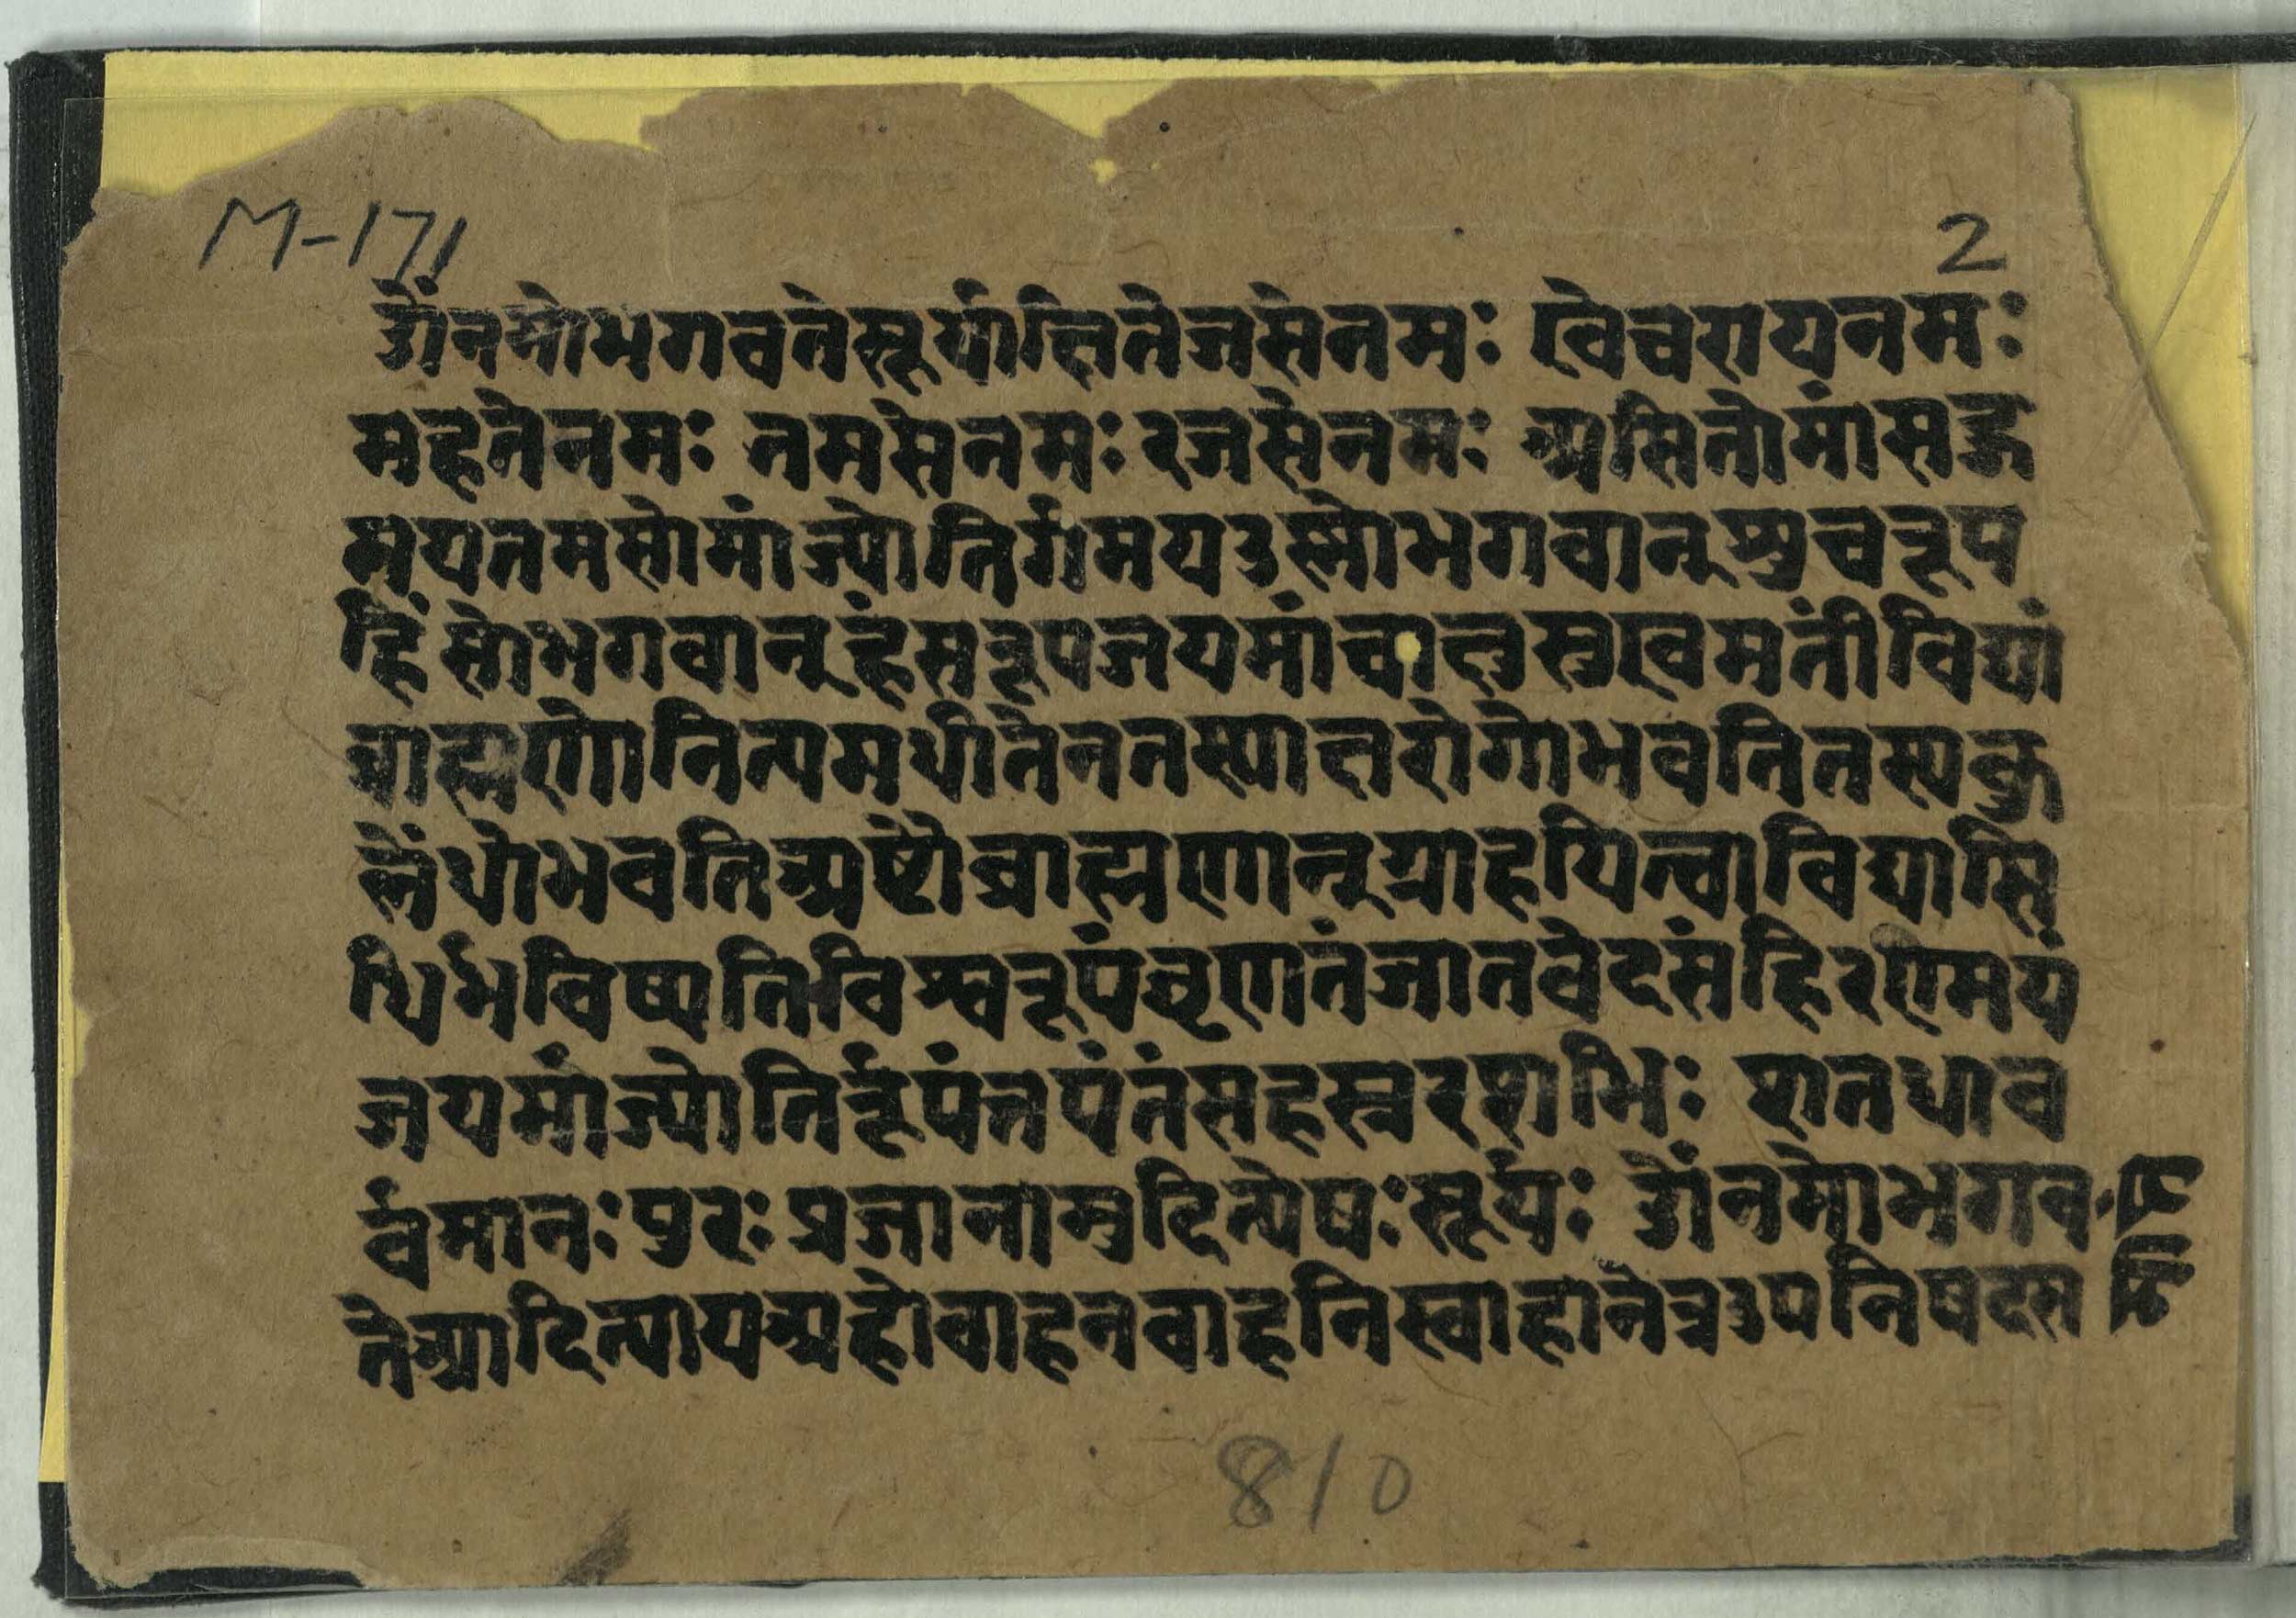 M-171
2
ॐनमोभगवतेसूर्याक्षितेजसेनमः खेचरायनमः
महतेनमः तमसेनमः रजसेनमः असितोमांसद्ग
मयतमसोमांज्योतिर्गमयउस्नोभगवान्शुचरूप
हिंसोभगवान्हंसरूपजयमांचाक्षुस्मुखमतीविद्यां
ब्राह्मणोनित्यमधीतेनतस्याक्षरोगोभवतितस्यकु
लेंधोभवतिअष्टौब्राह्मणान्ग्राहयित्वाविद्यासि
धिर्भविष्यतिविश्वरूपंघृणंतंजातवेदसंहिरण्मयं
जयमांज्योतिर्रूपंतपंतंसहस्ररशभिः शतधाव
र्वमानः पुरः प्रजानामुदित्येषः सूर्यः ॐनमोभगव
तेआदित्यायअहोवाहनवाहनिस्वाहानेत्रउपनिषदस
810